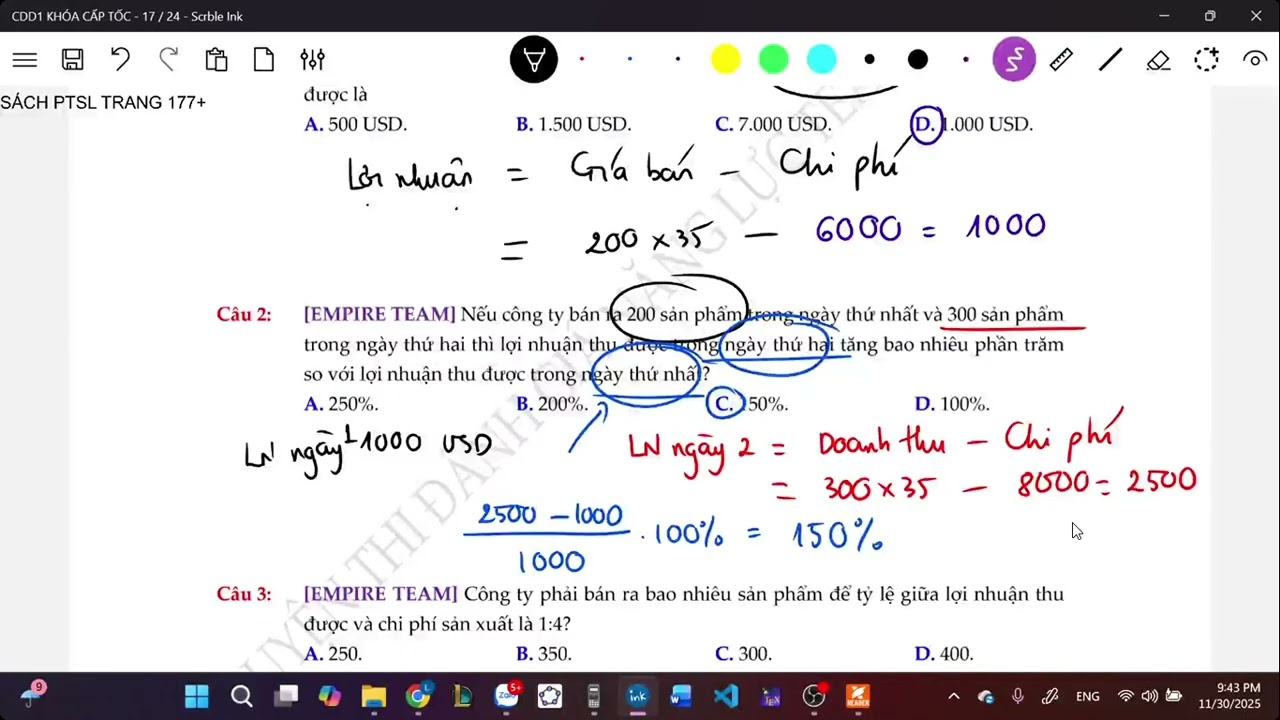 CDD1 KHÓA CẤP TỐC - 17 / 24 - Scrble Ink
SÁCH PTSL TRANG 177+
được là
A. 500 USD. B. 1.500 USD. C. 7.000 USD. D. 1.000 USD.
Lợi nhuận = Giá bán - Chi phí
= 200 x 35 - 6000 = 1000
Câu 2: [EMPIRE TEAM] Nếu công ty bán ra 200 sản phẩm trong ngày thứ nhất và 300 sản phẩm
trong ngày thứ hai thì lợi nhuận thu được trong ngày thứ hai tăng bao nhiêu phần trăm
so với lợi nhuận thu được trong ngày thứ nhất?
A. 250%. B. 200%. C. 150%. D. 100%.
LN ngày 1 1000 USD
LN ngày 2 = Doanh thu - Chi phí
= 300 x 35 - 8000 = 2500
2500 - 1000
1000
. 100% = 150%
Câu 3: [EMPIRE TEAM] Công ty phải bán ra bao nhiêu sản phẩm để tỷ lệ giữa lợi nhuận thu
được và chi phí sản xuất là 1:4?
A. 250. B. 350. C. 300. D. 400.
9
5+
ENG
9:43 PM
11/30/2025